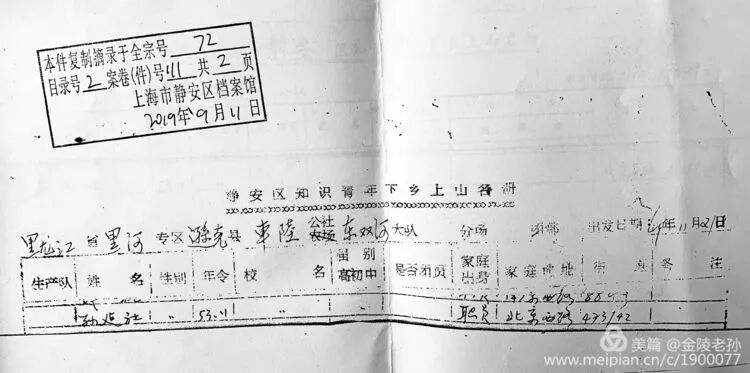 本件复制摘录于全宗号 72
目录号 2 案卷(件)号 111 共 2 页
上海市静安区档案馆
2019年9月11日
静安区知识青年下乡上山名册
黑龙江省黑河专区逊克县車陸公社农场东双河大队 分场 出发日期: 年11月21日
生产队 姓名 性别 年令 校名 届别高初中 是否团员 家庭出身 家庭地 街 备注
孙 社 〃 53.11 〃 〃 职员 北京西路 473/42
美篇 @金陵老孙
www.meipian.cn/c/1900077